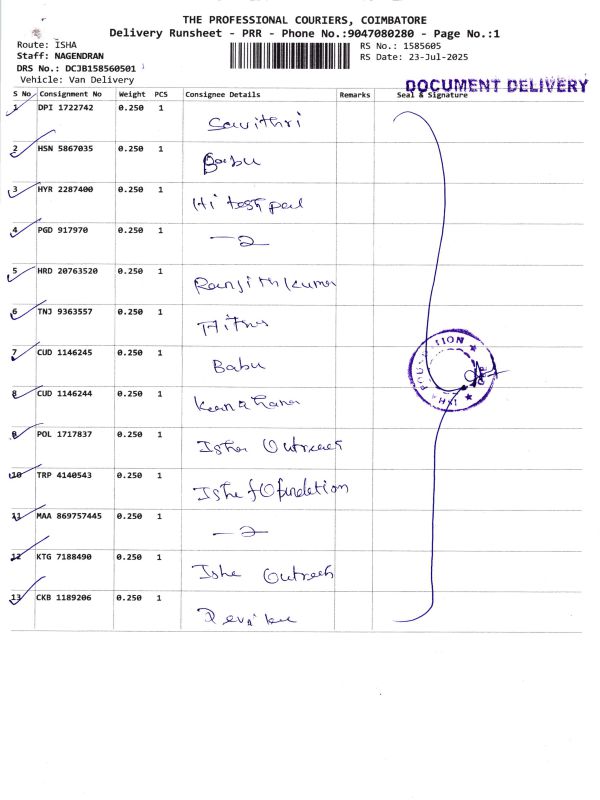 THE PROFESSIONAL COURIERS, COIMBATORE
Delivery Runsheet - PRR - Phone No.:9047080280 - Page No.:1
Route: ISHA
Staff: NAGENDRAN
DRS No.: DCJB158560501
Vehicle: Van Delivery
RS No.: 1585605
RS Date: 23-Jul-2025
DOCUMENT DELIVERY
S No Consignment No Weight PCS Consignee Details Remarks Seal & Signature
1 DPI 1722742 0.250 1 Savithri
2 HSN 5867035 0.250 1 Babu
3 HYR 2287400 0.250 1 Hi
4 PGD 917970 0.250 1 —2
5 HRD 20763520 0.250 1 Ranjithkumar
6 TNJ 9363557 0.250 1
7 CUD 1146245 0.250 1 Babu
8 CUD 1146244 0.250 1
9 POL 1717837 0.250 1 Isha Outreach
10 TRP 4140543 0.250 1 Isha
11 MAA 869757445 0.250 1 —2
12 KTG 7188490 0.250 1 Isha Outreach
13 CKB 1189206 0.250 1
ISHA FOUNDATION